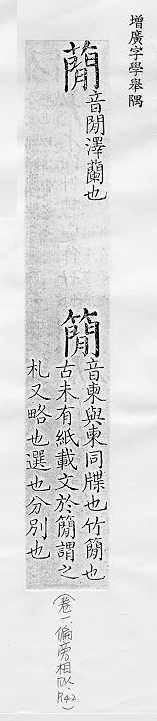 增廣字學舉隅
蕑音閒澤蘭也
簡音柬與柬同牒也竹簡也
古未有紙載文於簡謂之
札又略也選也分別也
(卷一、偏旁相似 P.42)